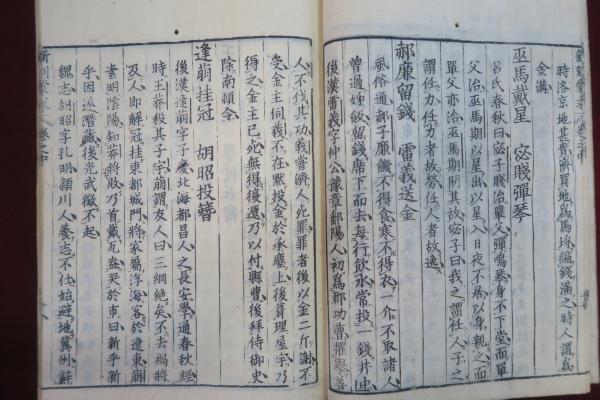 時洛京地甚貴濟買地爲馬埒編錢滿之時人謂爲
金溝
巫馬戴星　宓賤彈琴
呂氏春秋曰宓子賤治單父彈鳴琴身不下堂而單
父治巫馬期以星出以星入日夜不居以身親之而
單父亦治巫馬期問其故宓子曰我之謂任人子之
謂任力任力者故勞任人者故逸
郝廉留錢　雷義送金
風俗通郝子廉饑不得食寒不得衣一介不取諸人
曾過姊飯留錢席下而去每行飲水常投一錢井中
後漢雷義字仲公豫章鄱陽人初爲郡功曹擢擧善
人不伐其功義嘗濟人死罪罪者後以金二斤謝不
受金主伺義不在默投金於承塵上後葺理屋宇乃
得之金主已死無得復還乃以付縣曹後拜侍御史
除南頓令
逢萌挂冠　胡昭投簪
後漢逢萌字子慶北海都昌人之長安學通春秋經
時王莽殺其子宇萌謂友人曰三綱絶矣不去禍將
及人即解冠挂東都城門將家屬浮海客於遼東萌
素明陰陽知莽將敗乃首戴瓦盎哭於市曰新乎新
乎因遂潛藏後光武徵不起
魏志胡昭字孔明潁川人養志不仕始避地冀州